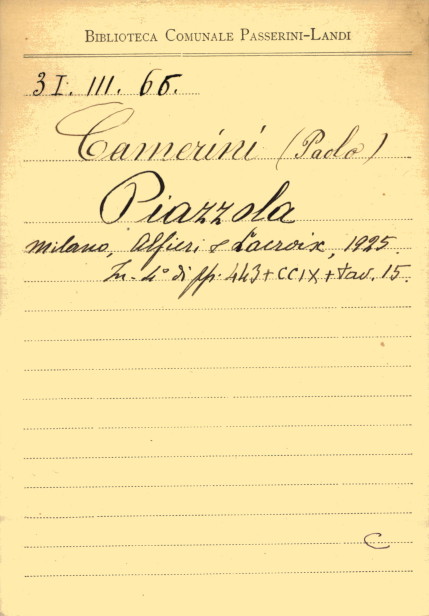 BIBLIOTECA COMUNALE PASSERINI-LANDI
3I. III. 66.
Camerini (Paolo)
Piazzola
Milano, Alfieri & Lacroix, 1925.
In-4° di pp. 443+CCIX+tav. 15.
C